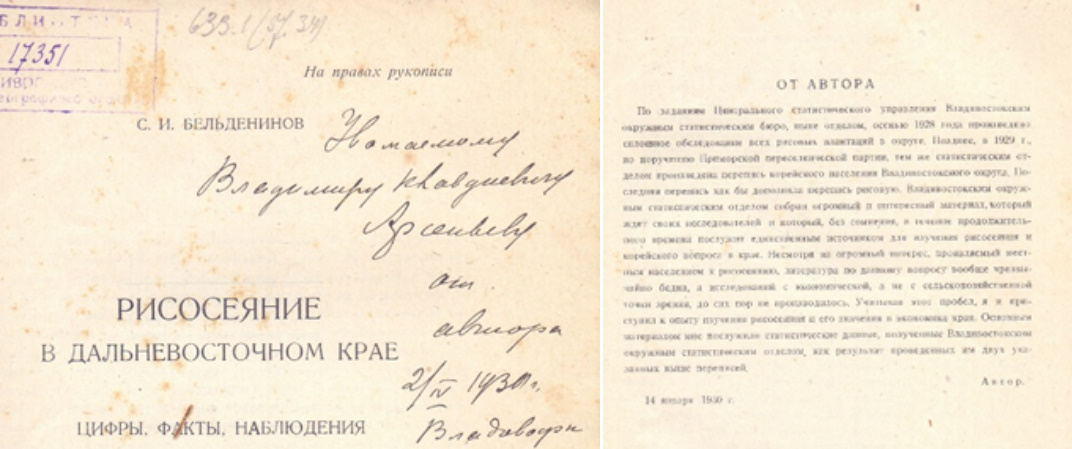 БЛИОТЕКА
17351
633.1(57.34)
На правах рукописи
С. И. БЕЛЬДЕНИНОВ
Уважаемому
Владимиру Клавдиевичу
Арсеньеву
от
автора
2/IV 1930 г.
Владивосток
РИСОСЕЯНИЕ
В ДАЛЬНЕВОСТОЧНОМ КРАЕ
ЦИФРЫ, ФАКТЫ, НАБЛЮДЕНИЯ
ОТ АВТОРА
По заданиям Центрального статистического управления Владивостокским
окружным статистическим бюро, ныне отделом, осенью 1928 года произведено
сплошное обследование всех рисовых плантаций в округе. Позднее, в 1929 г.,
по поручению Приморской переселенческой партии, тем же статистическим от-
делом произведена перепись корейского населения Владивостокского округа. По-
следняя перепись как бы дополнила перепись рисовую. Владивостокским окруж-
ным статистическим отделом собран огромный и интересный материал, который
ждет своих исследователей и который, без сомнения, в течение продолжитель-
ного времени послужит единственным источником для изучения рисосеяния и
корейского вопроса в крае. Несмотря на огромный интерес, проявляемый мест-
ным населением к рисосеянию, литература по данному вопросу вообще чрезвы-
чайно бедна, а исследований с экономической, а не с сельскохозяйственной
точки зрения, до сих пор не производилось. Учитывая этот пробел, я и при-
ступил к опыту изучения рисосеяния и его значения в экономике края. Основным
материалом мне послужили статистические данные, полученные Владивостокским
окружным статистическим отделом, как результат проведенных им двух ука-
занных выше переписей.
Автор.
14 января 1930 г.